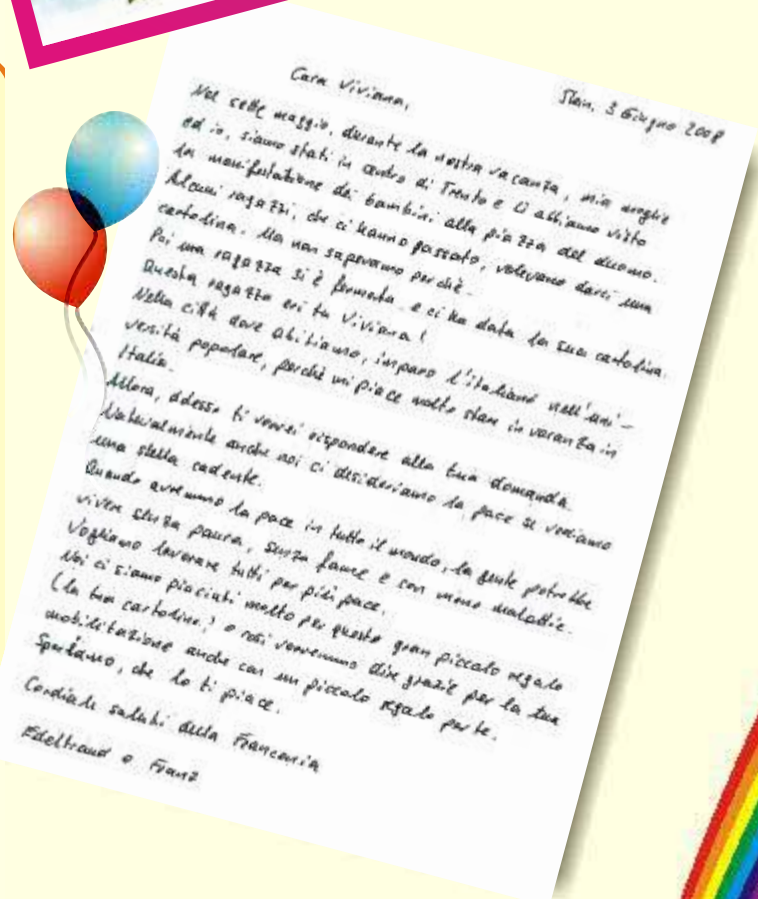 Cara Viviana,
Stein, 3 Giugno 2008
Nel sette maggio, durante la nostra vacanza, mia moglie
ed io, siamo stati in centro di Trento e li abbiamo visto
la manifestazione dei bambini alla piazza del duomo.
Alcuni ragazzi, che ci hanno passato, volevano darci una
cartolina. Ma non sapevamo perchè.
Poi una ragazza si è fermata e ci ha data la sua cartolina.
Questa ragazza eri tu Viviana!
Nella città dove abitiamo, imparo l'italiano nell'uni-
versità popolare, perchè mi piace molto stare in vacanza in
Italia.
Allora, adesso ti vorrei rispondere alla tua domanda.
Naturalmente anche noi ci desideriamo la pace se vediamo
una stella cadente.
Quando avremmo la pace in tutto il mondo, la gente potrebbe
vivere senza paura, senza fame e con meno malattie.
Vogliamo lavorare tutti per più pace.
Noi ci siamo piaciuti molto per questo gran piccolo regalo
(la tua cartolina) e così vorremmo dire grazie per la tua
mobilitazione anche con un piccolo regalo per te.
Speriamo, che lo ti piace.
Cordiale saluti della Franconia
Edeltraud e Franz